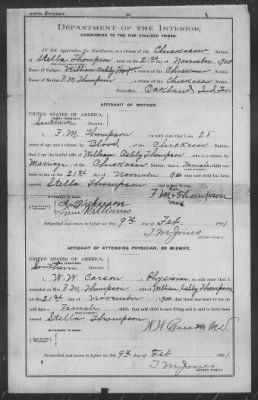 DEPARTMENT OF THE INTERIOR,
COMMISSION TO THE FIVE CIVILIZED TRIBES.
In Re Application for Enrollment, as a citizen of the Chickasaw Nation,
of Stella Thompson, born on the 21st day of November, 1900
Name of Father: William Ashly Thompson a citizen of the Chickasaw Nation.
Name of Mother: F. M. Thompson a citizen of the Chickasaw Nation.
Postoffice, Oakland, Ind. Ter.
AFFIDAVIT OF MOTHER.
UNITED STATES OF AMERICA,
Southern District.
I, F. M. Thompson, on oath state that I am 28
years of age and a citizen, by Blood, of the Chickasaw Nation;
that I am the lawful wife of William Ashly Thompson, who is a citizen, by
Marriage, of the Chickasaw Nation; that a Female child was
born to me on the 21st day of November, 1900; that said child has been
named Stella Thompson, and is now living.
F. M. Thompson
WITNESSES TO MARK:
Williams
Subscribed and sworn to before me this 9th day of Feb, 1901.
T. M. Jones
NOTARY PUBLIC.
AFFIDAVIT OF ATTENDING PHYSICIAN, OR MIDWIFE.
UNITED STATES OF AMERICA,
Southern District.
I, W. W. Carson, a Physician, on oath state that I
attended on Mrs. F. M. Thompson, wife of William Ashly Thompson
on the 21st day of November, 1900; that there was born to her on said
date a Female child; that said child is now living and is said to have been
named Stella Thompson
W. W. Carson M.D.
WITNESSES TO MARK:
Subscribed and sworn to before me this 9th day of Feb, 1901.
T. M. Jones
NOTARY PUBLIC.